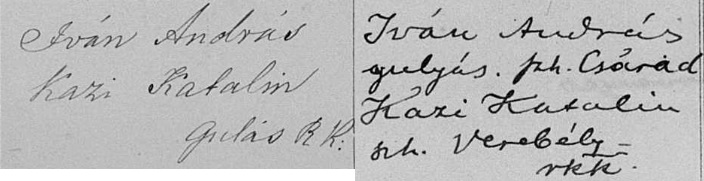 Iván András
Kazi Katalin
Gulás R. K.
Iván András
gulyás. szh. Csárád
Kazi Katalin
szh. Verebély
rkk.